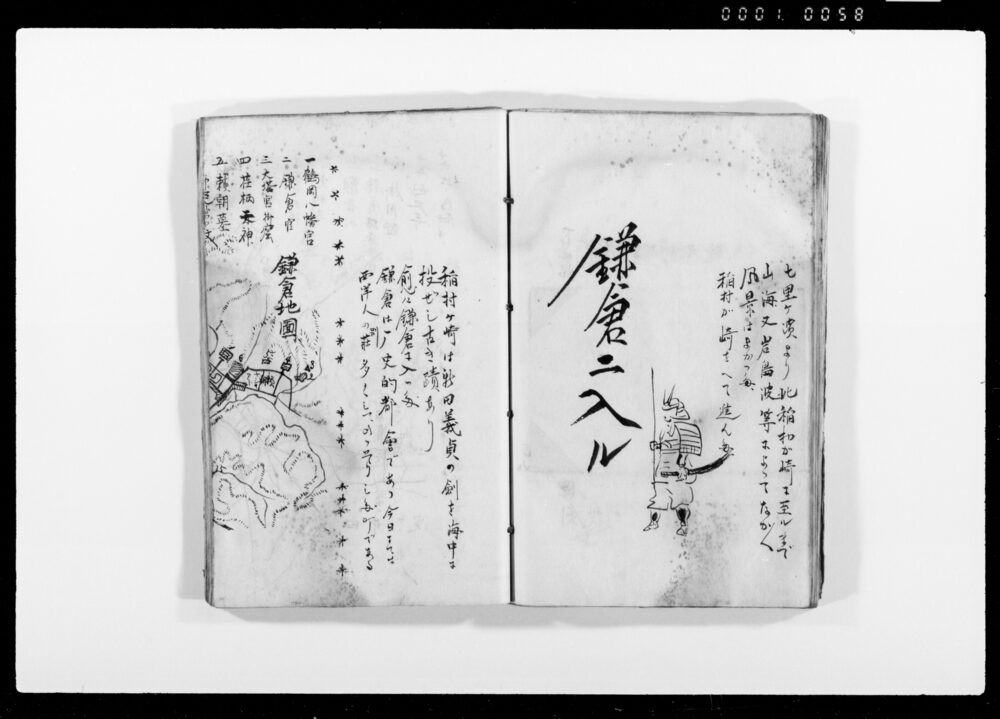 0001 0058
七里ヶ濱より此稲村が崎に至ルまで
山海又岩島波等によってながく
風景はよかつた
稲村が崎をへて進んだ
鎌倉ニ入ル
稲村ヶ崎は新田義貞の劍を海中に
投ぜし古き蹟あり
愈々鎌倉に入つた
鎌倉は一ノ史的都會であつ今日までは
西洋人の別莊多く
町である
一鶴岡八幡宮
二鎌倉宮
三大塔宮御窟
四荏柄天神
五頼朝墓
鎌倉地圖